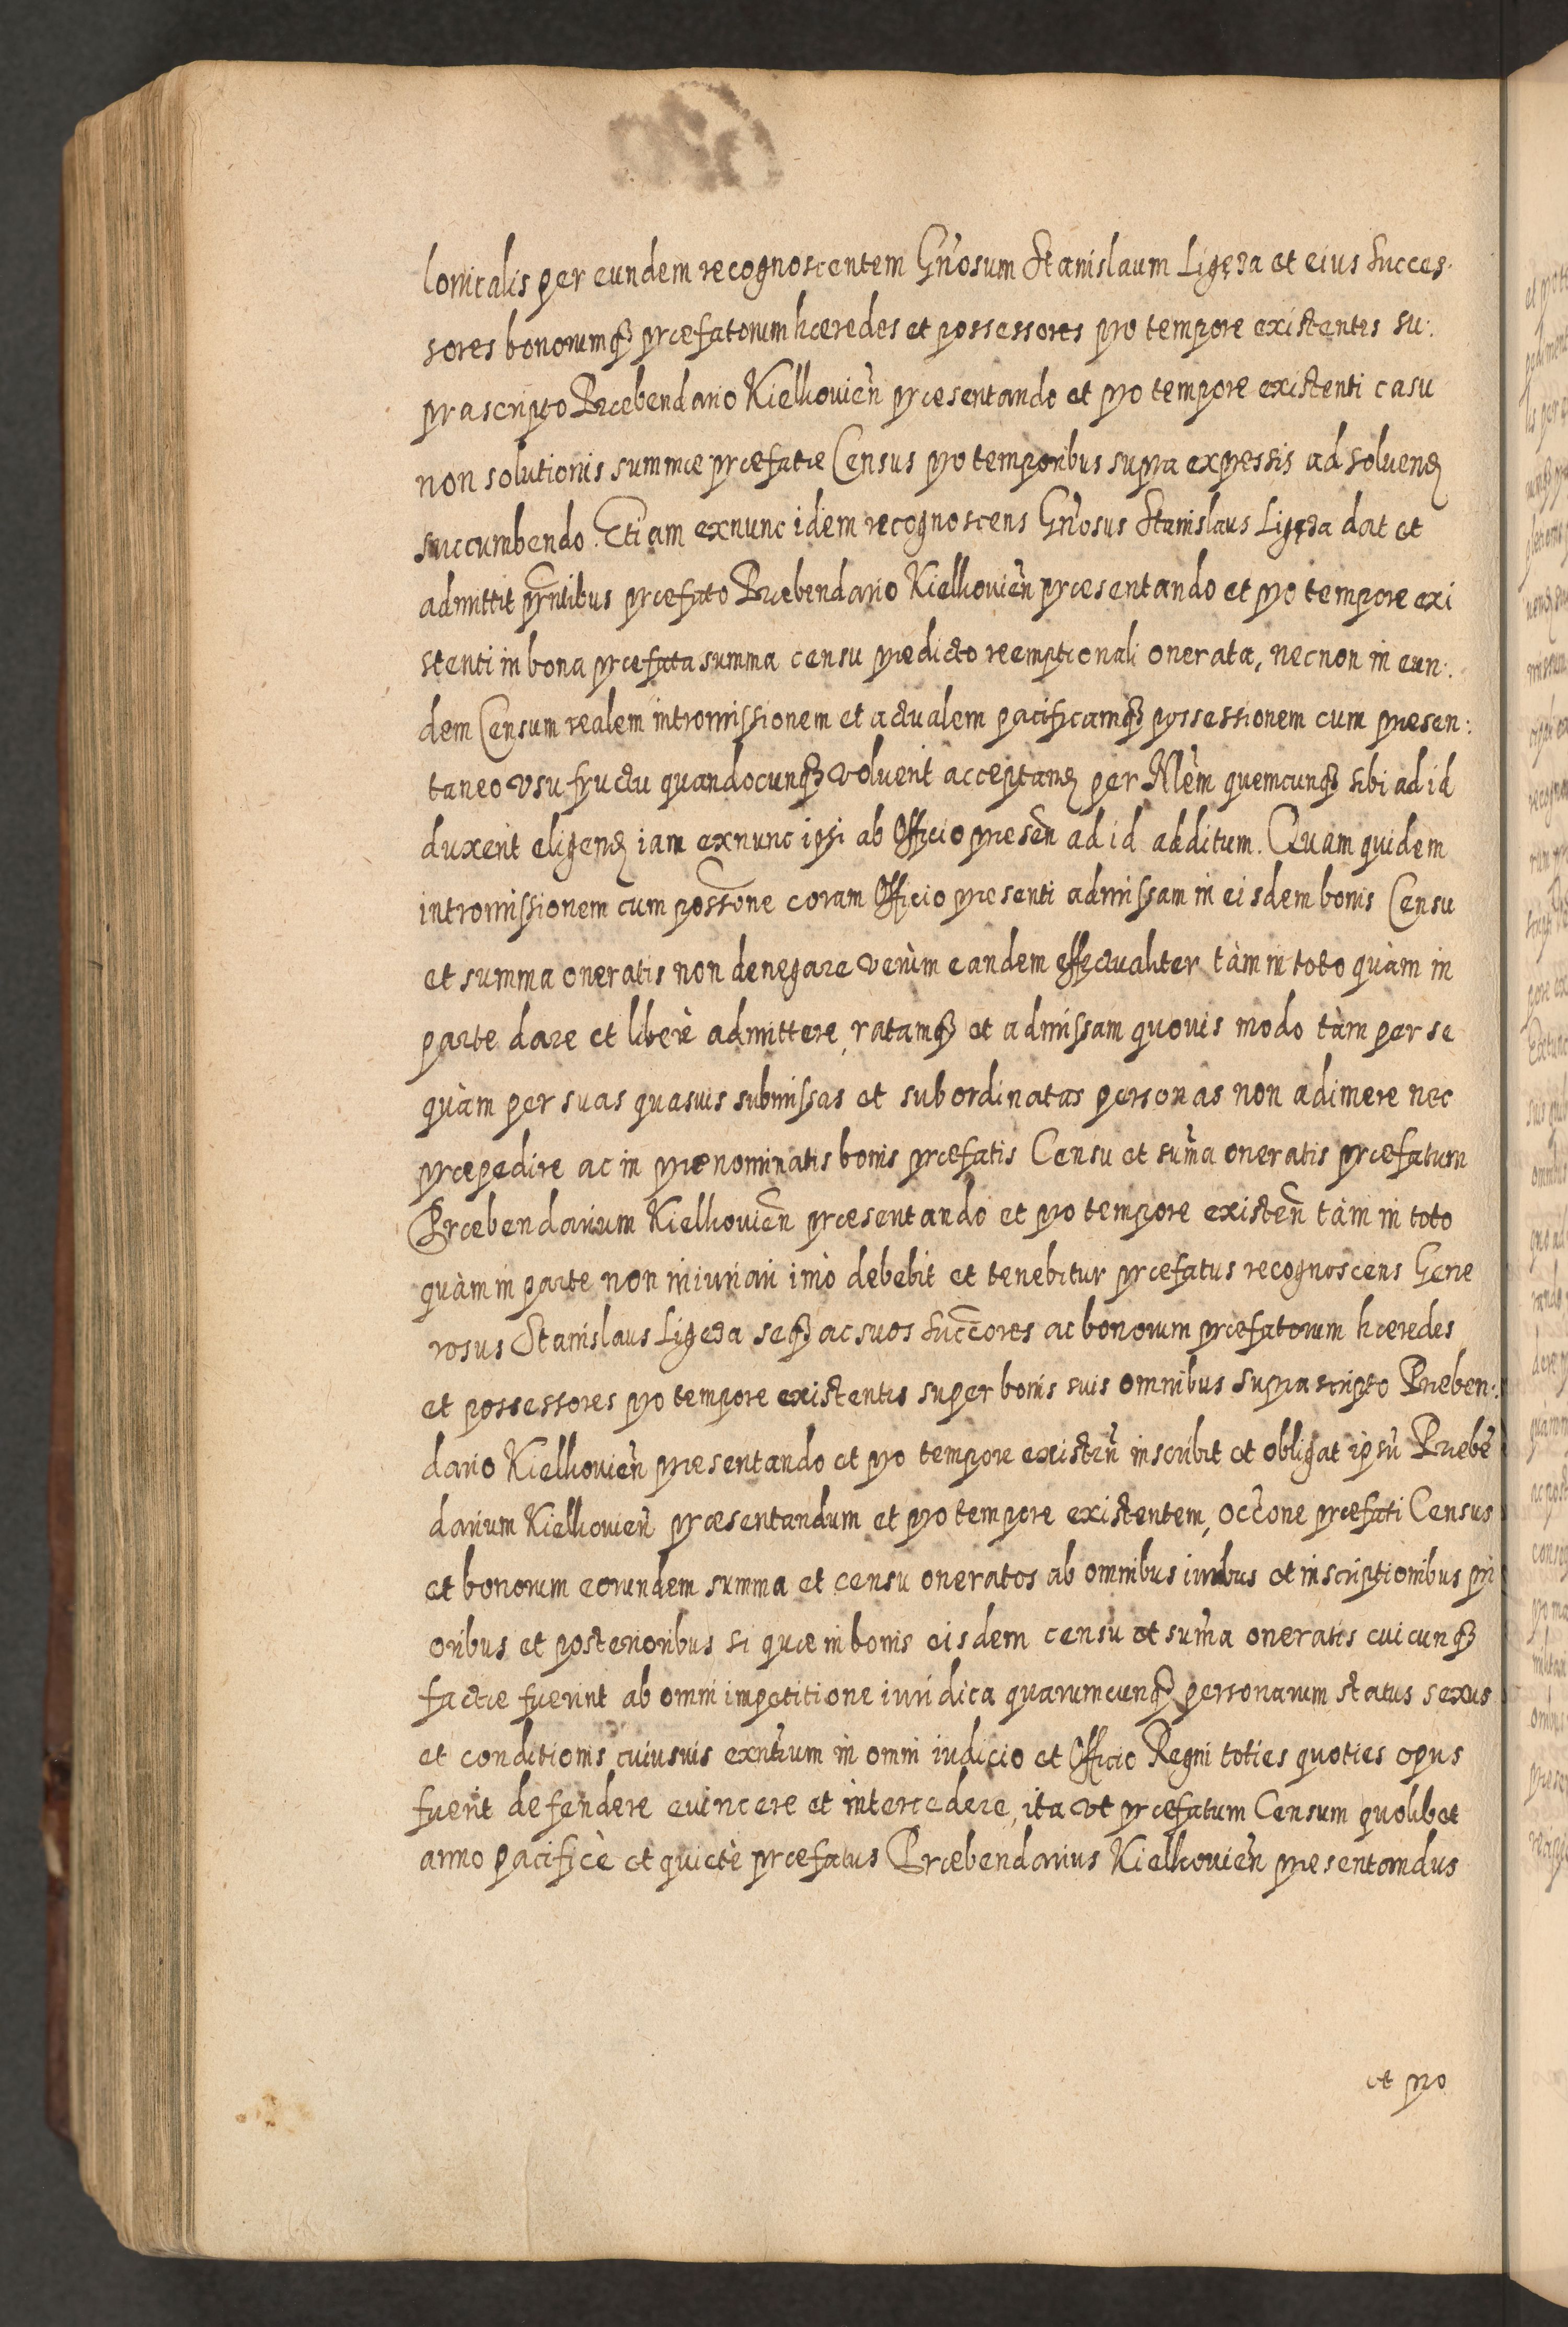 lonicalis per eundem recognoscentem Gn̄osum Stanislaum Ligęza et eius Succes.
sores bonorumq₃ præfatorum hæredes et possessores pro tempore existentes su:.
prascripto Præbendario Kielkovien̄ præsentando et pro tempore existenti casu
non solutionis summæ præfatæ Census pro temporibus supra expressis ad soluend
succumbendo. Etiam exnunc idem recognoscens Gn̄osus Stanislaus Ligęza dat et
admittit prn̄tibus præfato Præbendario Kielkovien̄ præsentando et pro tempore exi
stenti in bona præfata summa censu prædicto reemptionali onerata, necnon in eun:.
dem Censum realem intromissionem et actualem pacificamq₃ possessionem cum præsen:
taneo vsufructu quandocunq₃ voluerit acceptand per Mlēm quemcunq₃ sibi ad id
duxerit eligend iam exnunc ipsi ab Officio præsen̄ ad id additum. Quam quidem
intromissionem cum possōne coram Officio præsenti admissam in eisdem bonis Censu
et summa oneratis non denegare verùm eandem effectualiter tàm in toto quàm in
parte dare et liberè admittere, ratamq₃ et admissam quovis modo tàm per se
quàm per suas quasuis submissas et subordinatas personas non adimere nec
præpedire ac in prænominatis bonis præfatis Censu et sum̄a oneratis præfatum
Præbendarium Kielkovien̄ præsentando et pro tempore existen̄ tàm in toto
quàm in parte non iniuriari imò debebit et tenebitur præfatus recognoscens Gene
rosus Stanislaus Ligęza seq₃ ac suos succēores ac bonorum præfatorum hæredes
et possessores pro tempore existentes super bonis suis omnibus suprascripto Præben:.
dario Kielkovien̄ præsentando et pro tempore existen̄ inscribit et obligat ipsū Præbē
darium Kielkovien̄ præsentandum et pro tempore existentem, occ̄one præfati Census
et bonorum eorundem summa et censu oneratos ab omnibus iuribus et inscriptionibus pri
oribus et posterioribus si quæ in bonis eisdem censu et sum̄a oneratis cuicunq₃
factæ fuerint ab omni impetitione iuridica quarumcunq₃ personarum status sexus
et conditionis cuiusuis exn̄tium in omni iudicio et Officio Regni toties quoties opus
fuerit defendere evincere et intercedere, ita vt præfatum Censum quolibet
anno pacificè et quietè præfatus Præbendarius Kielkovien̄ præsentandus
et pro